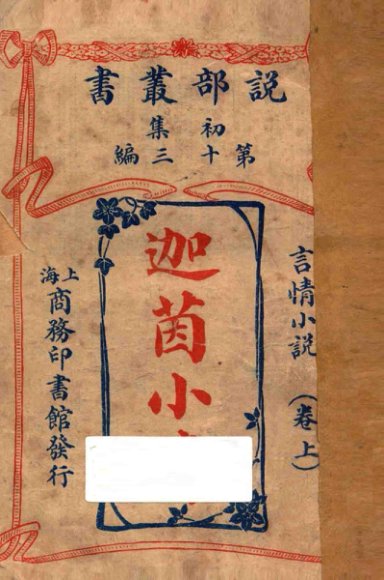 說部叢書
初集
第十三編
言情小說
（卷上）
迦茵小
上海
商務印書館發行